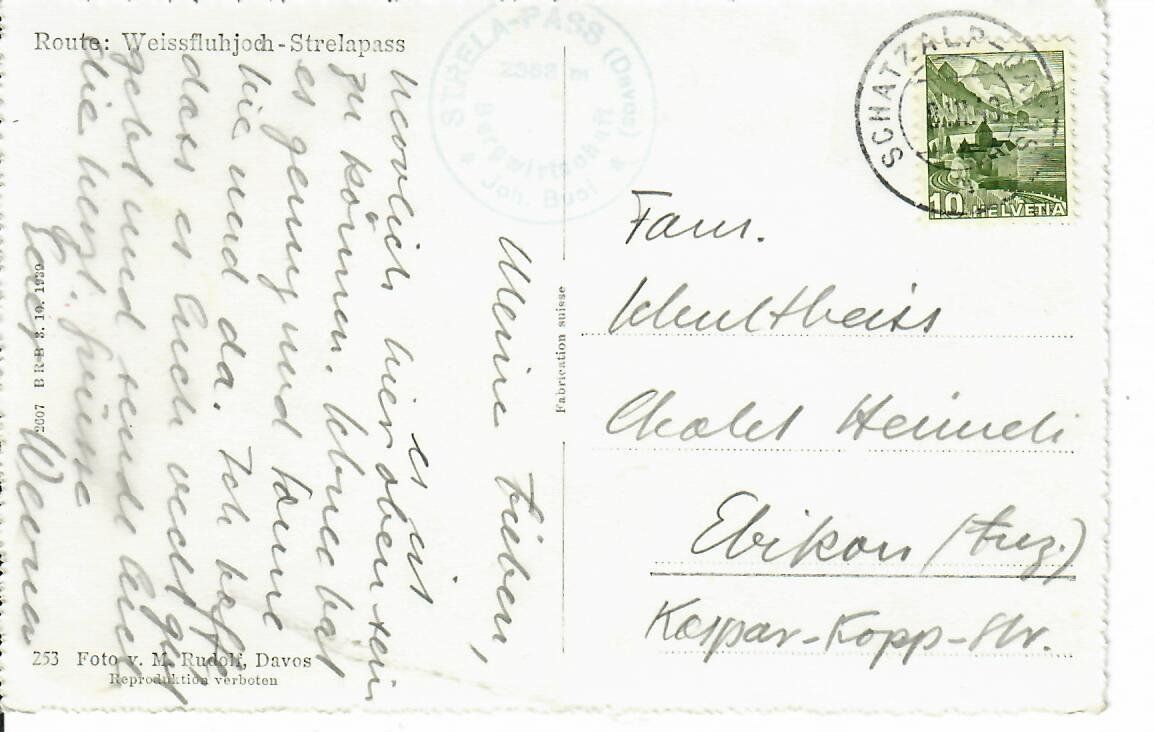 Route: Weissfluhjoch-Strelapass
STRELA-PASS (Davos)
2353 m
Bergwirtschaft
Joh. Buol
SCHATZALP
10 HELVETIA
Meine Lieben,
es ist
herrlich hier oben sein
zu können. Schnee hat
es genug und Sonne
hie und da. Ich hoffe
dass es Euch recht gut
geht und sende Euch
alle herzl. Grüsse
Euer Werner
Fabrication suisse
2607 BRB 3. 10. 1939
253 Foto v. M. Rudolf, Davos
Reproduktion verboten
Fam.
Schultheiss
Chalet Heimeli
Ebikon (Luz.)
Kaspar-Kopp-Str.